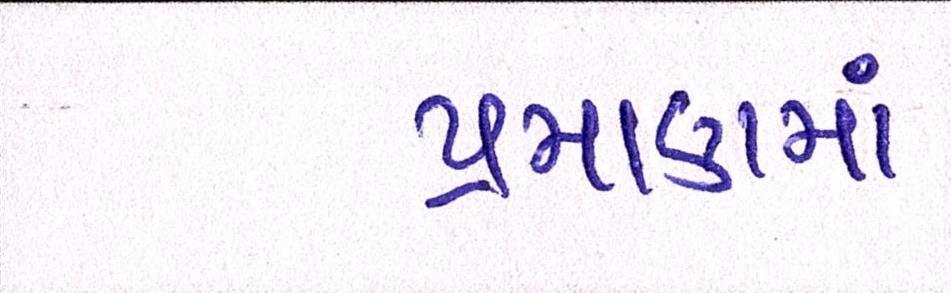 પ્રમાણમાં